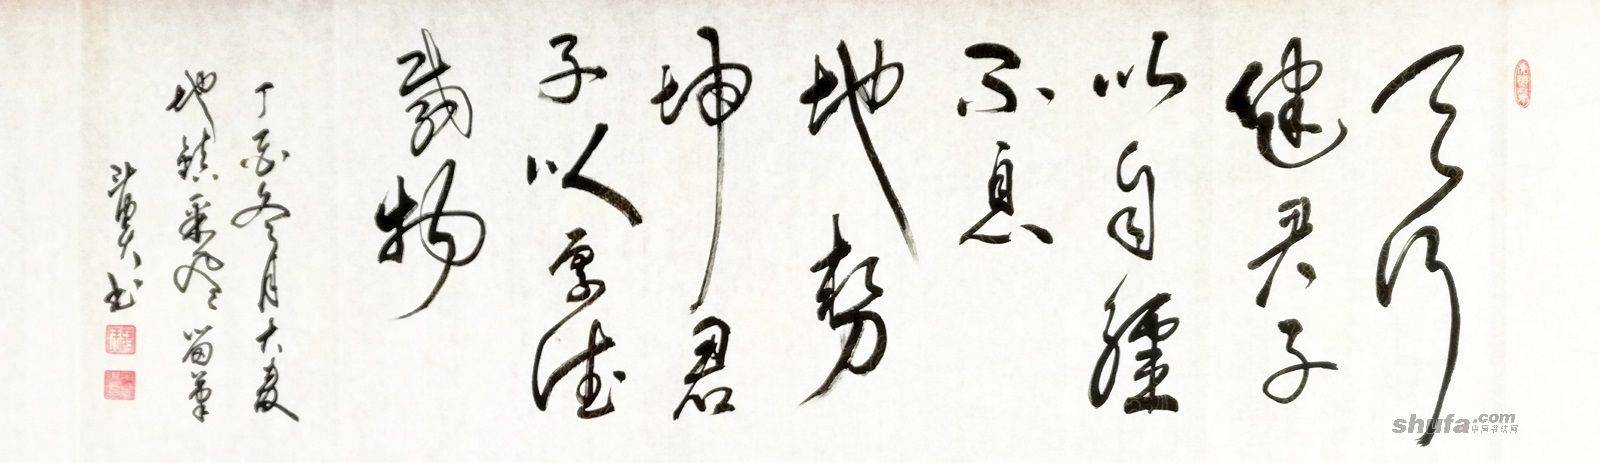 天行
健君子
以自彊
不息
地势
坤君
子以厚德
载物
丁酉冬月大麦
地镇
书
shufa.com
中国书法网